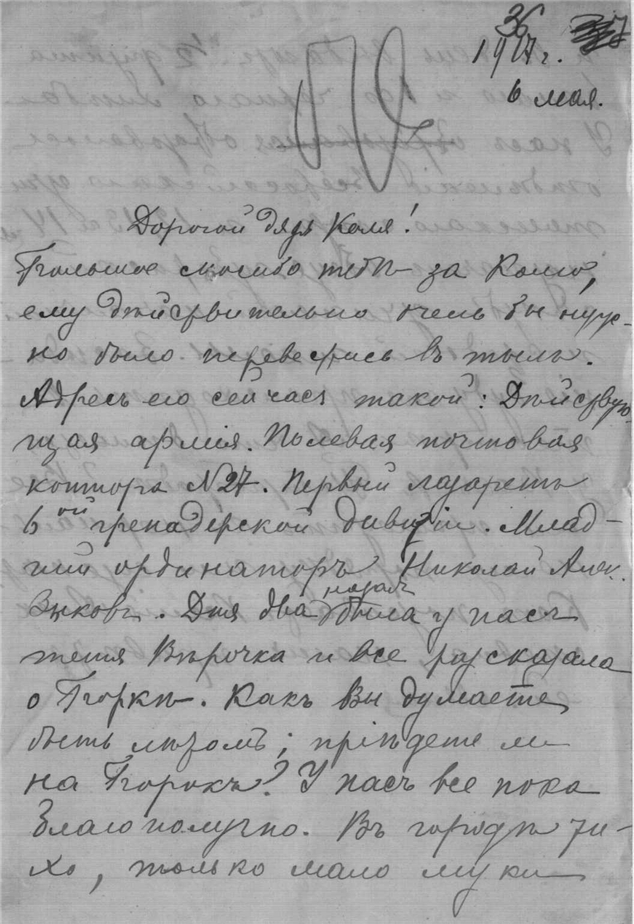 36
1917 г.
6 мая.
Дорогой дядя Коля!
Большое спасибо тебѣ за Колю,
ему дѣйствительно очень бы нуж-
но было перевестись въ тылъ.
Адресъ его сейчасъ такой: Дѣйствую-
щая армія. Полевая почтовая
контора №27. Первый лазаретъ
6ой гренадерской дивизіи. Млад-
шій ординаторъ Николай Алек.
Зыковъ. Дня два назадъ была у насъ
тетя Вѣрочка и все разсказала
о Боркѣ. Какъ вы думаете
быть лѣтомъ; пріѣдете ли
на Борокъ? У насъ все пока
благополучно. Въ городѣ ти-
хо, только мало муки